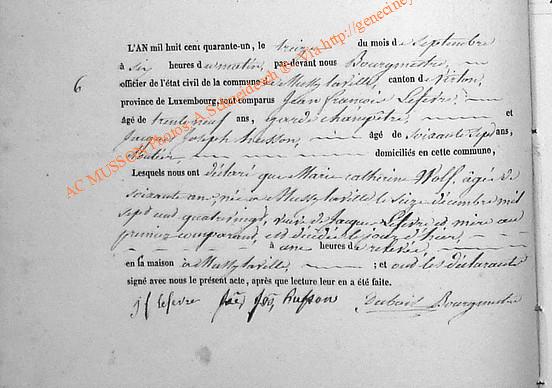 L'AN mil huit cent quarante-un, le treize du mois de Septembre
à six heures du matin, par-devant nous Bourgmestre
officier de l'état civil de la commune de Mussy laville, canton de Virton,
6
province de Luxembourg, sont comparus Jean François Lefevre,
âgé de trente neuf ans, garde champêtre, et
Jacques Joseph Husson, âgé de soixante sept ans,
domiciliés en cette commune,
Lesquels nous ont déclaré que Marie Catherine Wolf, âgée de
soixante ans, née à Mussy laville le seize décembre mil
sept cent quatre vingt, veuve de Jacques Lefevre et mère au
premier comparant, est décédée le jour d'hier,
à une heures de relevée
en sa maison à Mussy laville, ; et ont les déclarants
signé avec nous le présent acte, après que lecture leur en a été faite.
J f Lefevre Jos, Husson Dubois Bourgmestre
AC MUSSON Photos: A. Schneidesch © Via http://geneciney